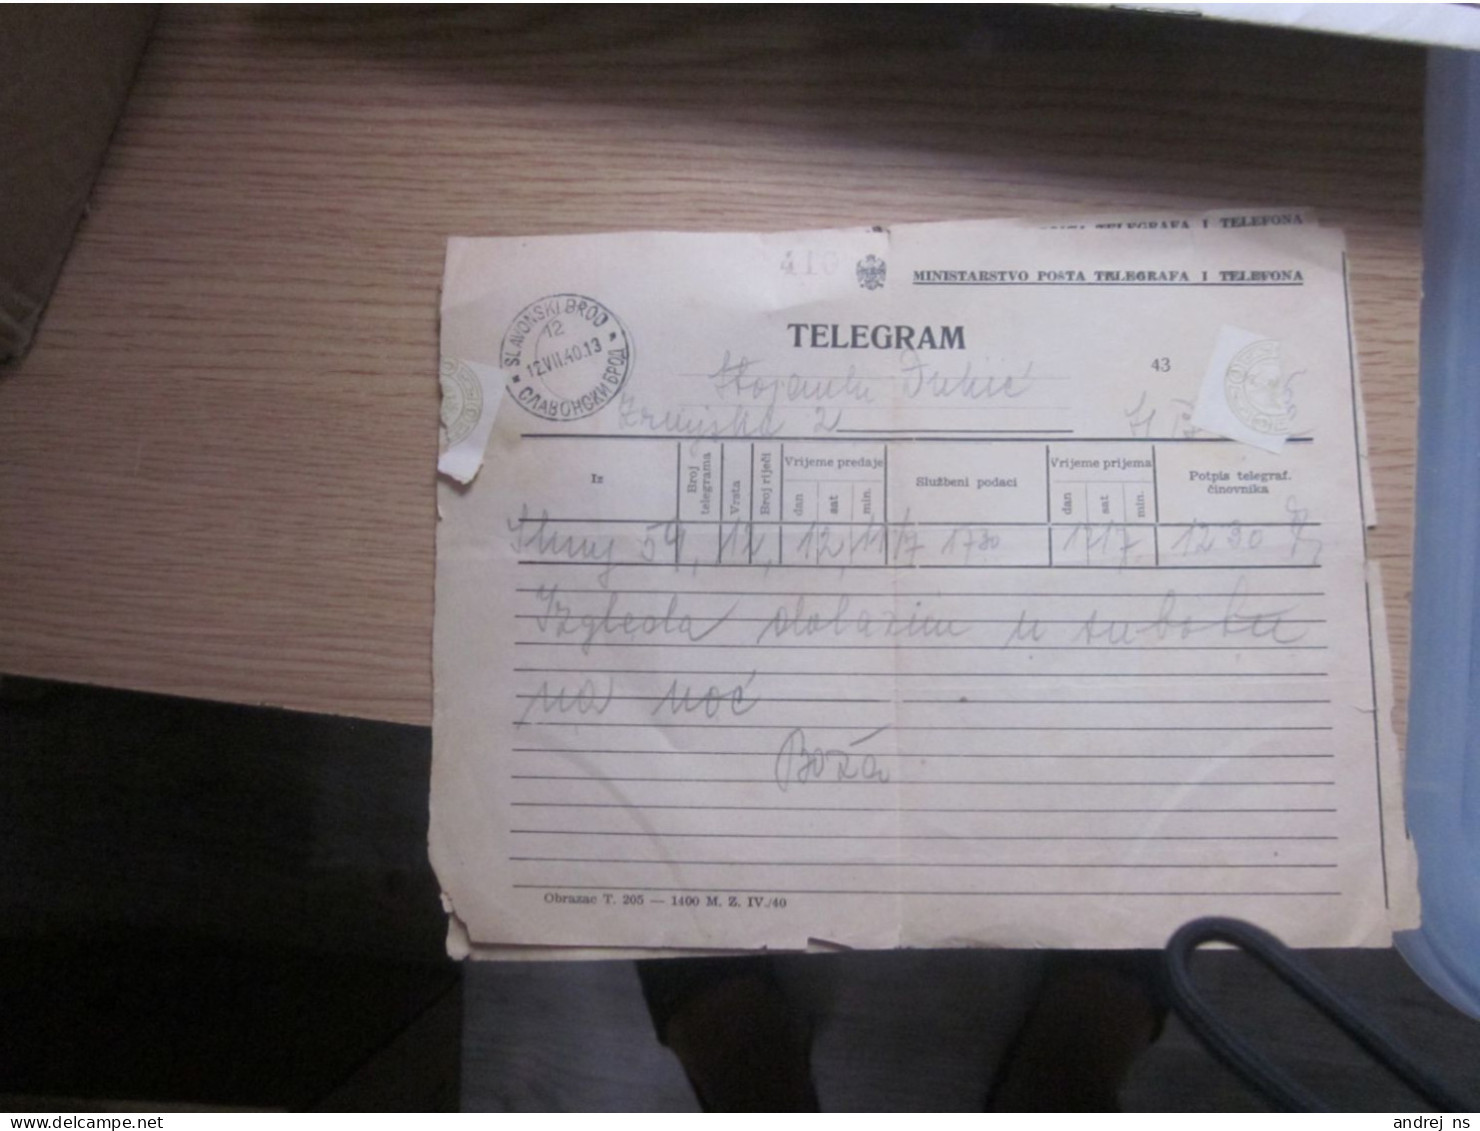 POSTA TELEGRAFA I TELEFONA
MINISTARSTVO POSTA TELEGRAFA I TELEFONA
SLAVONSKI BROD
12
12.VII.40.13
СЛАВОНСКИ БРОД
TELEGRAM
43
2
Iz
Broj telegrama
Vrsta
Broj riječi
Vrijeme predaje
dan
sat
min.
Službeni podaci
Vrijeme prijema
dan
sat
min.
Potpis telegraf. činovnika
54 12 12 11/7 1730 12/7 12 30
Izgleda dolazim u subotu
na noć
Boža
Obrazac T. 205 — 1400 M. Z. IV./40
andrej ns